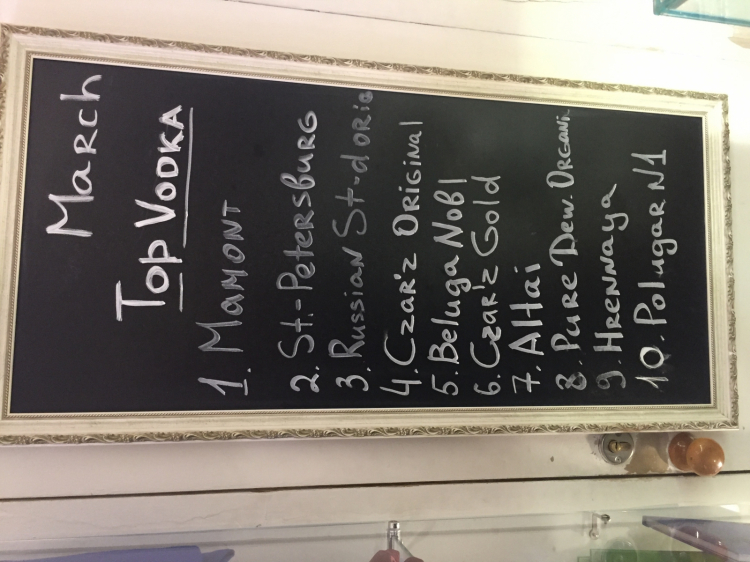 March
Top Vodka
1. Mamont
2. St.-Petersburg
3. Russian St-d Orig
4. Czar'z Original
5. Beluga Nobl
6. Czar'z Gold
7. Altai
8. Pure Dew. Organi
9. Hrennaya
10. Polugar N1